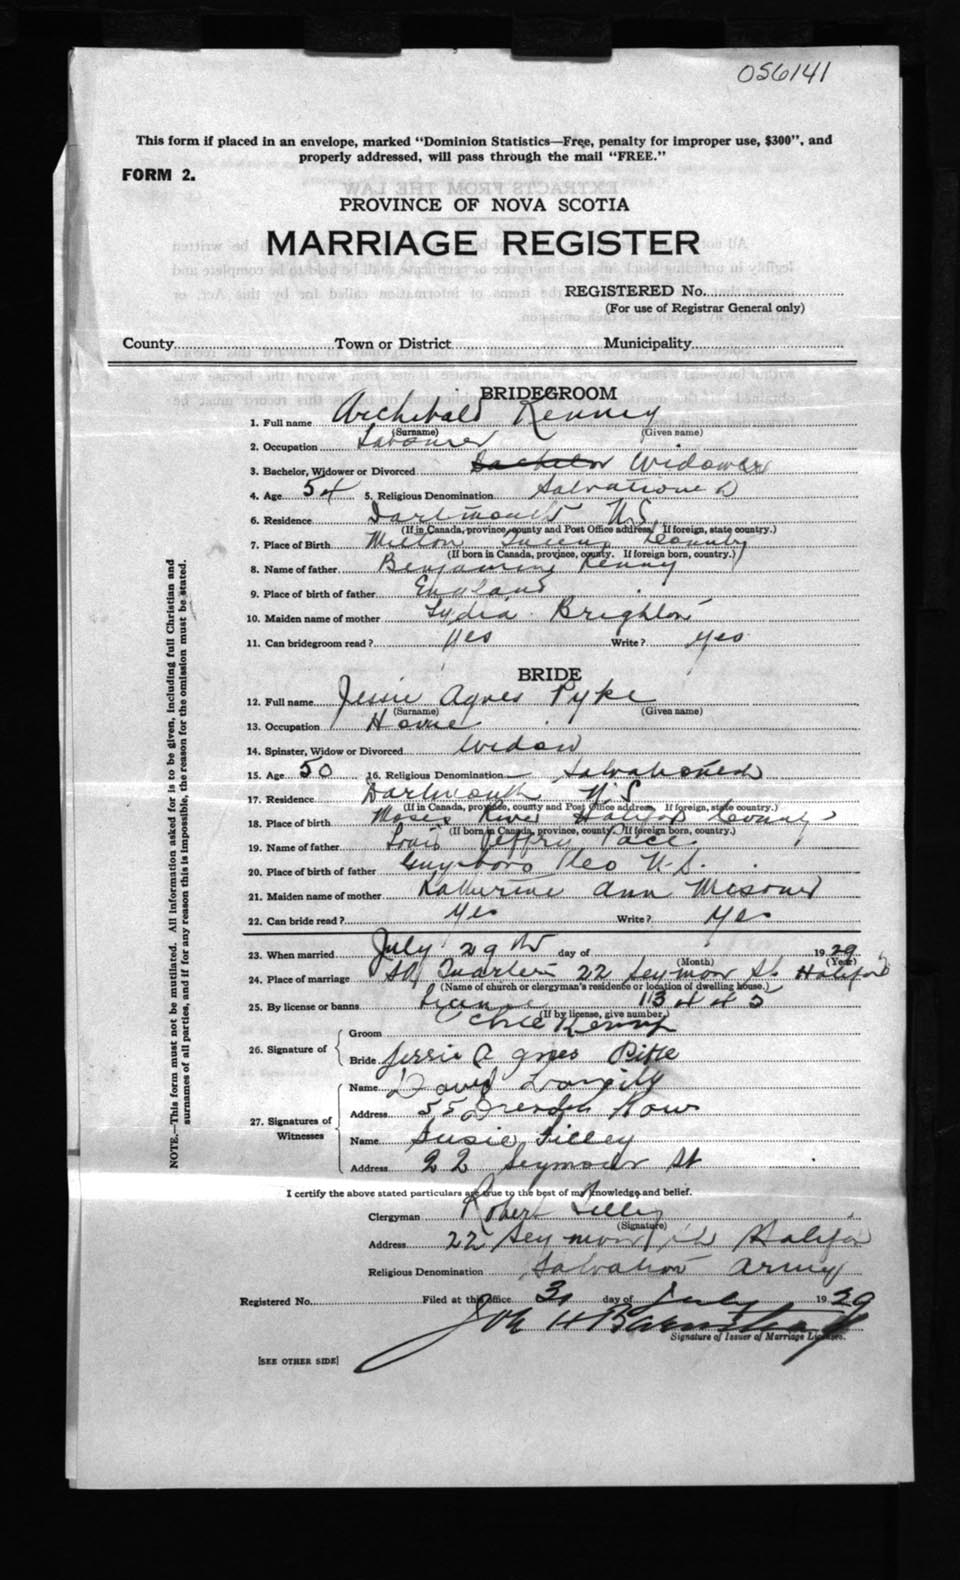 056141
This form if placed in an envelope, marked "Dominion Statistics—Free, penalty for improper use, $300", and
properly addressed, will pass through the mail "FREE."
FORM 2.
PROVINCE OF NOVA SCOTIA
MARRIAGE REGISTER
REGISTERED No.
(For use of Registrar General only)
County Town or District Municipality
BRIDEGROOM
1. Full name Archibald Kenney
(Surname) (Given name)
2. Occupation Labourer
3. Bachelor, Widower or Divorced Bachelor Widower
4. Age 54 5. Religious Denomination
6. Residence Dartmouth N.S.
(If in Canada, province, county and Post Office address. If foreign, state country.)
7. Place of Birth Milton Queens County
(If born in Canada, province, county. If foreign born, country.)
8. Name of father Benjamin Kenny
9. Place of birth of father England
10. Maiden name of mother Lydia Brighton
11. Can bridegroom read? yes Write? yes
BRIDE
12. Full name Jessie Agnes Pyke
(Surname) (Given name)
13. Occupation Home
14. Spinster, Widow or Divorced Widow
15. Age 50 16. Religious Denomination
17. Residence Dartmouth N S
(If in Canada, province, county and Post Office address. If foreign, state country.)
18. Place of birth Moses River Halifax County
(If born in Canada, province, county. If foreign born, country.)
19. Name of father Louis Jeffry Pace
20. Place of birth of father Guysboro N.S.
21. Maiden name of mother Katherine Ann
22. Can bride read? yes Write? yes
23. When married July 29th day of 1929
(Month) (Year)
24. Place of marriage 22 Seymour St Halifax
(Name of church or clergyman's residence or location of dwelling house.)
25. By license or banns
(If by license, give number)
26. Signature of Groom
Bride Jessie Agnes Pike
27. Signatures of Witnesses Name David
Address 55 Dresden Row
Name Susie Tilley
Address 22 Seymour St
I certify the above stated particulars are true to the best of my knowledge and belief.
Clergyman Robert Tilley
(Signature)
Address 22 Seymour St Halifax
Religious Denomination Salvation Army
Registered No. Filed at this office 31 day of July 1929
Signature of Issuer of Marriage Licenses.
[SEE OTHER SIDE]
NOTE.—This form must not be mutilated. All information asked for is to be given, including full Christian and
surnames of all parties, and if for any reason this is impossible, the reason for the omission must be stated.